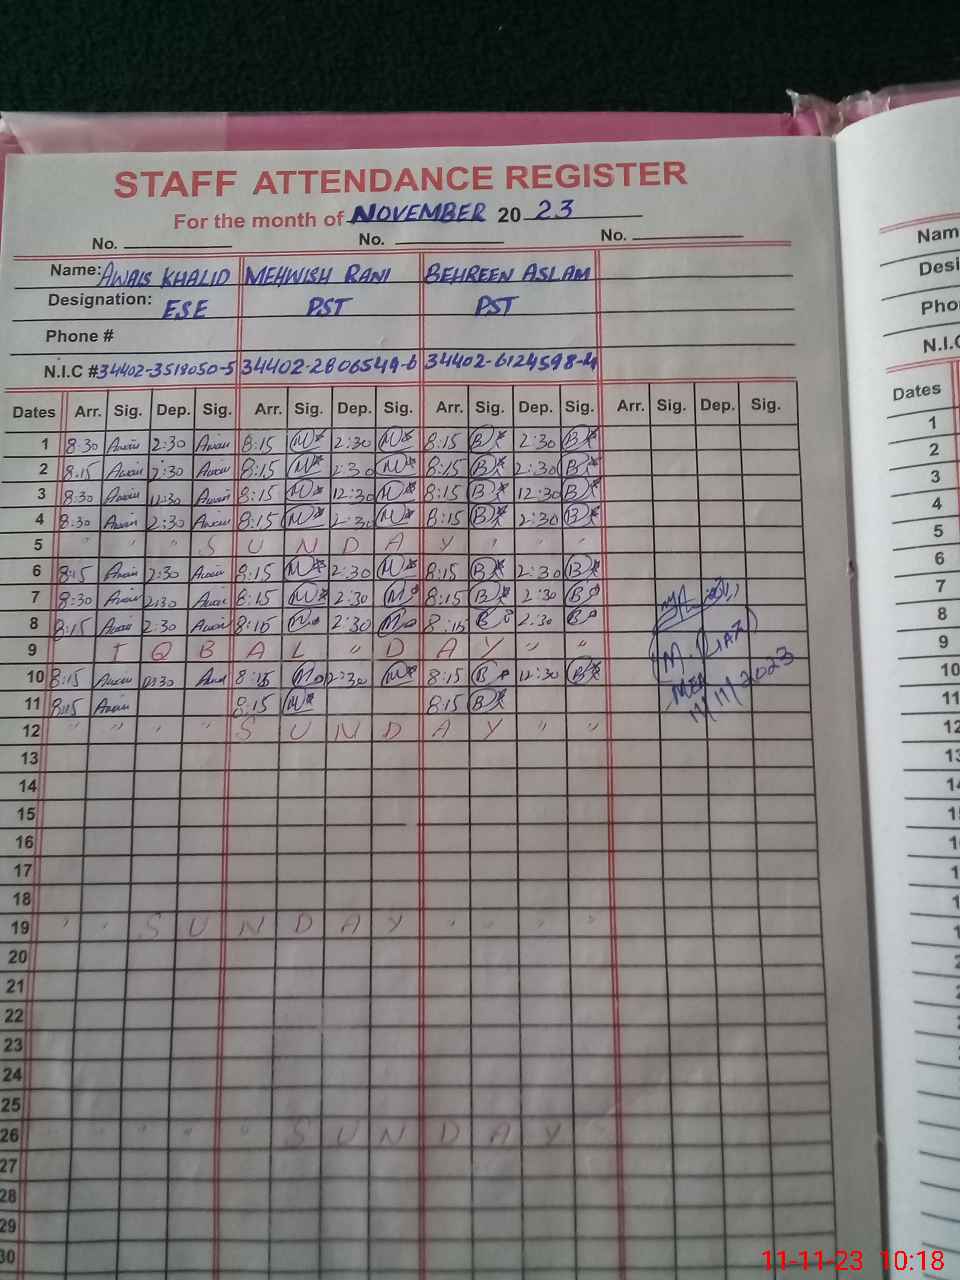 STAFF ATTENDANCE REGISTER
For the month of NOVEMBER 20 23
No. No. No.
Name: AWAIS KHALID MEHWISH RANI BEHREEN ASLAM
Designation: ESE PST PST
Phone #
N.I.C # 34402-3519050-5 34402-2806549-6 34402-6124598-4
Dates Arr. Sig. Dep. Sig. Arr. Sig. Dep. Sig. Arr. Sig. Dep. Sig. Arr. Sig. Dep. Sig.
1 8:30 Awais 2:30 Awais 8:15 M 2:30 M 8:15 B 2:30 B
2 8:15 Awais 2:30 Awais 8:15 M 2:30 M 8:15 B 2:30 B
3 8:30 Awais 12:30 Awais 8:15 M 12:30 M 8:15 B 12:30 B
4 8:30 Awais 2:30 Awais 8:15 M 2:30 M 8:15 B 2:30 B
5 " " " S U N D A Y " " "
6 8:15 Awais 2:30 Awais 8:15 M 2:30 M 8:15 B 2:30 B
7 8:30 Awais 2:30 Awais 8:15 M 2:30 M 8:15 B 2:30 B
8 8:15 Awais 2:30 Awais 8:15 M 2:30 M 8:15 B 2:30 B
9 I Q B A L " D A Y " "
10 8:15 Awais 12:30 8:15 M 12:30 M 8:15 B 12:30 B
11 8:15 Awais 8:15 M 8:15 B
12 " " " " S U N D A Y " "
M. RIAZ
MEA
11/11/2023
13
14
15
16
17
18
19 " " S U N D A Y " " " "
20
21
22
23
24
25
26 " " " " " S U N D A Y
27
28
29
30
Nam
Desi
Pho
N.I.C
Dates
1
2
3
4
5
6
7
8
9
10
11
12
13
14
11-11-23 10:18